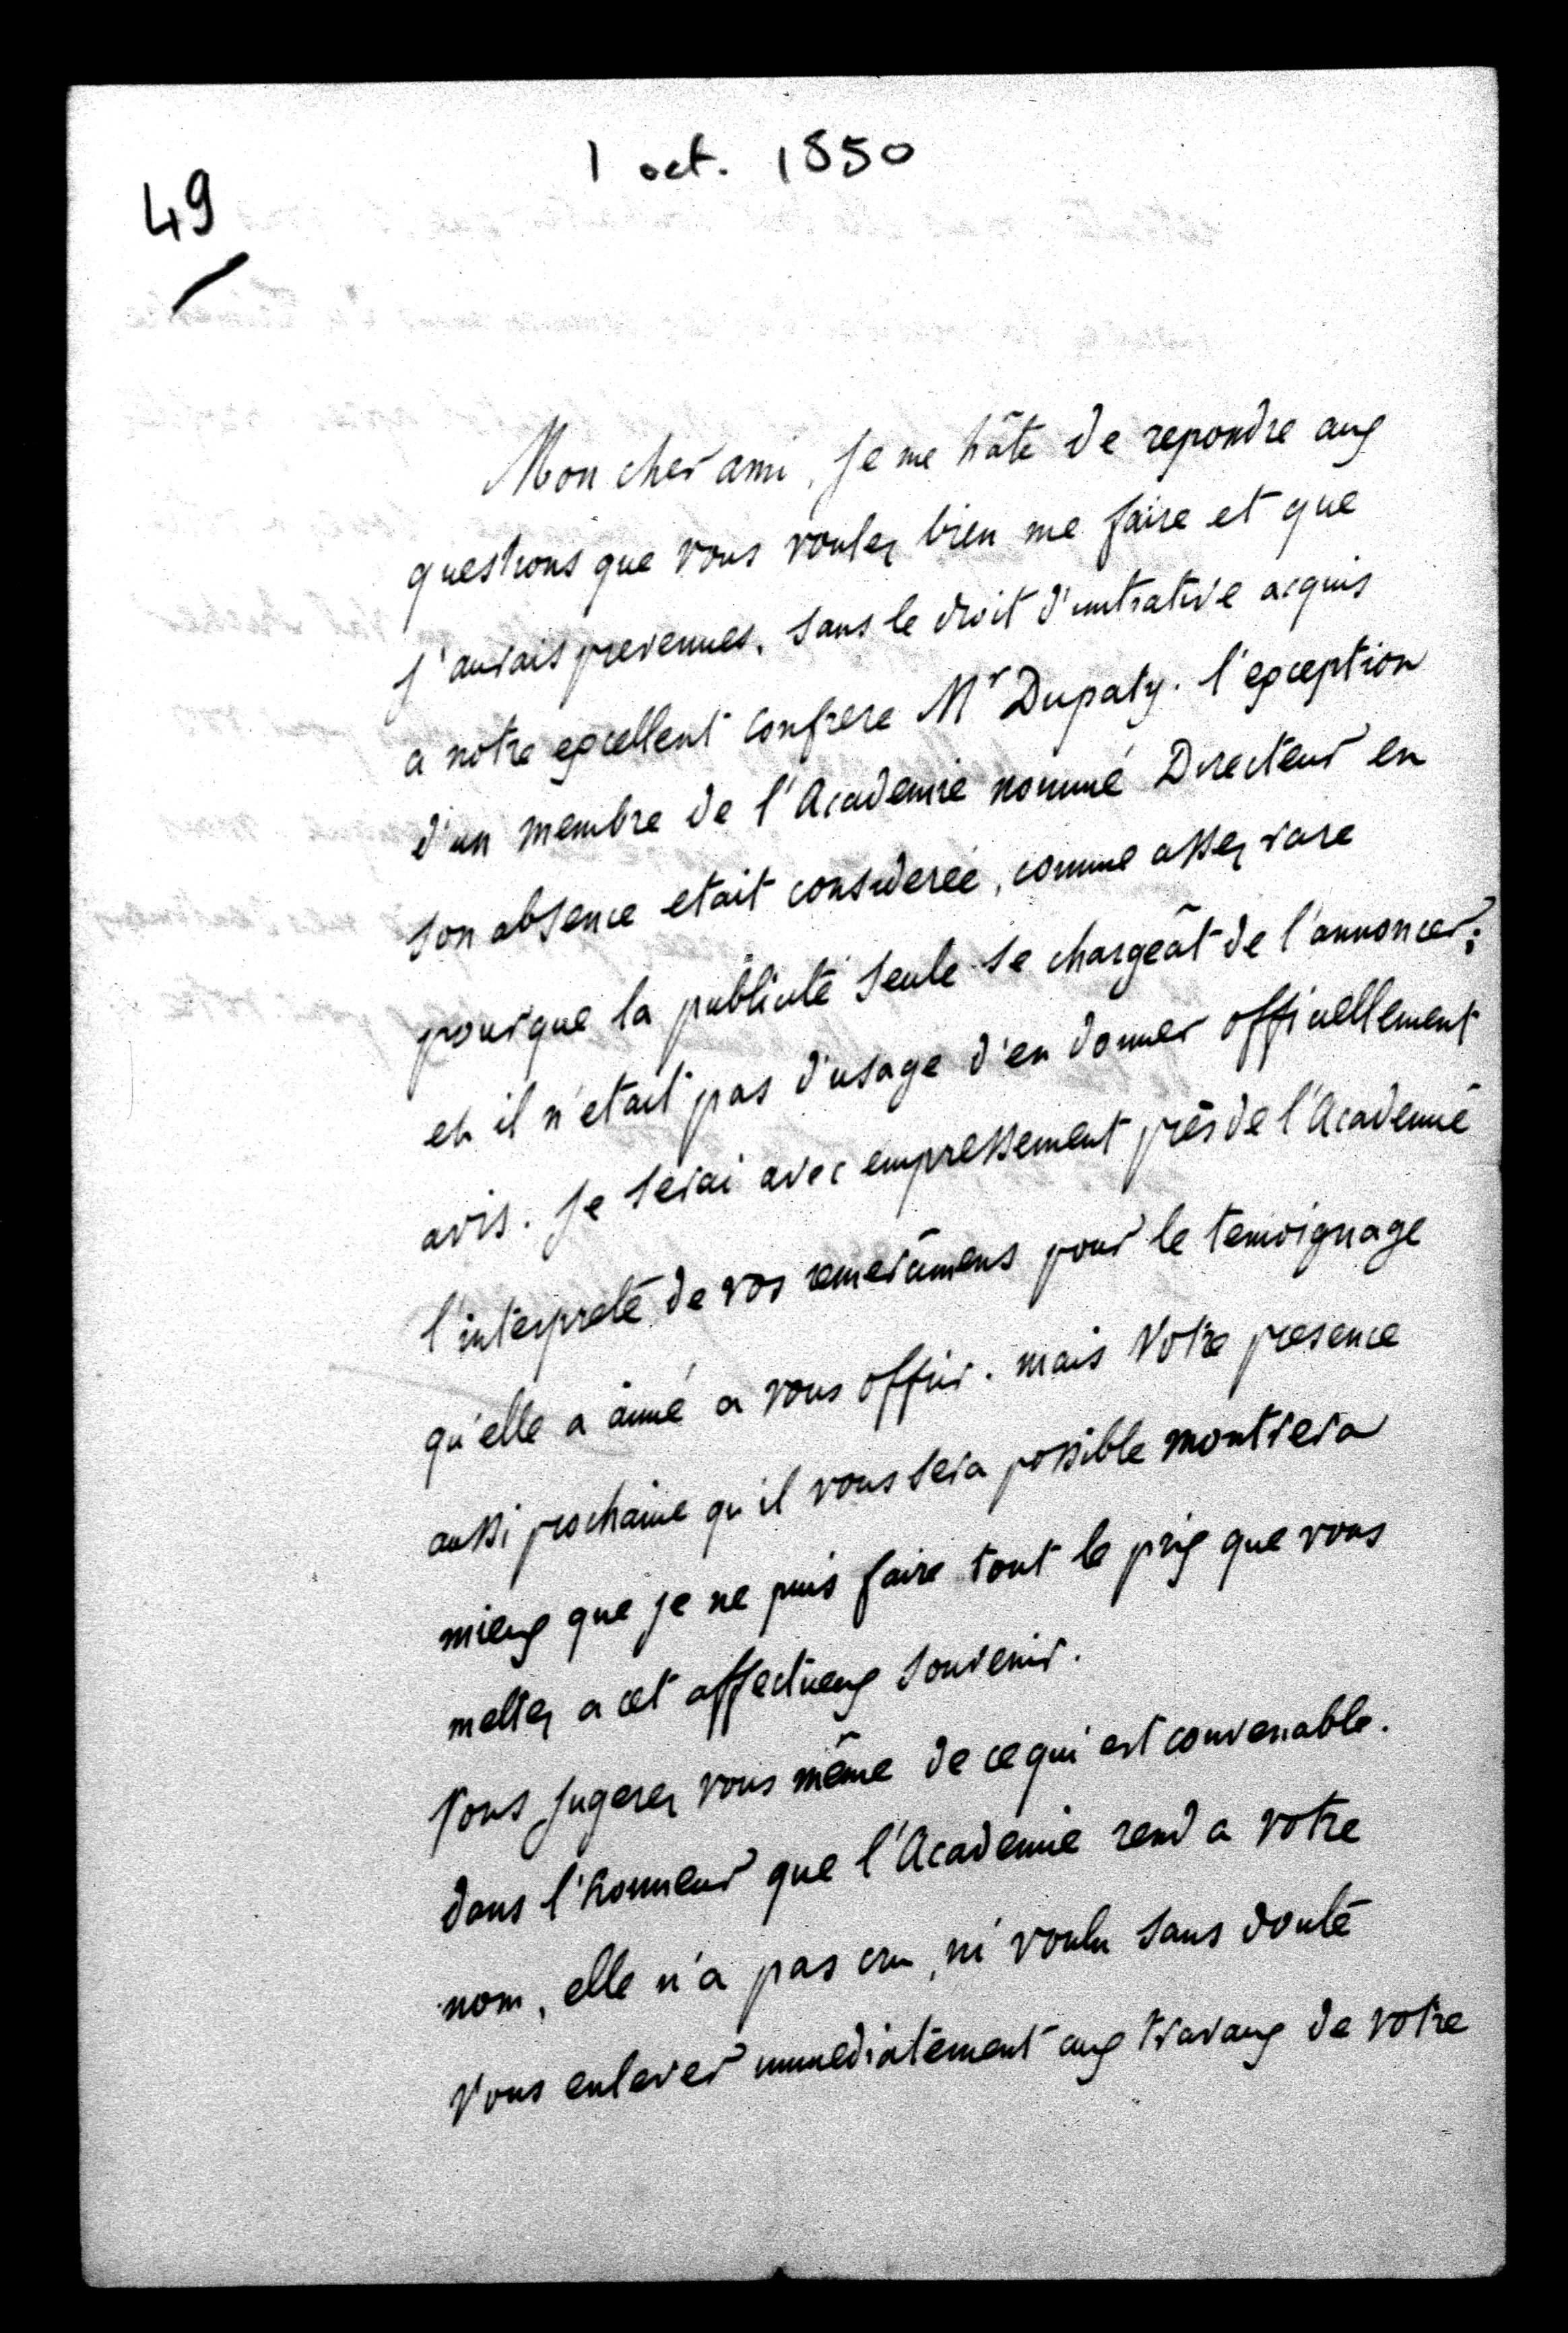 1 oct. 1850
49
Mon cher ami, je me hâte de repondre aux
questions que vous voulez bien me faire et que
j'aurais prevenues, sans le droit d'initiative acquis
a notre excellent confrere Mr Dupaty. l'exception
d'un membre de l'Academie nommé Directeur en
son absence etait considerée, comme assez rare
pour que la publicité seule se chargeât de l'annoncer;
et il n'etait pas d'usage d'en donner officiellement
avis. je serai avec empressement près de l'Academie
l'interprete de vos remercimens pour le temoignage
qu'elle a aimé a vous offrir. mais Votre presence
aussi prochaine qu'il vous sera possible montrera
mieux que je ne puis faire tout le prix que vous
mettez a cet affectueux souvenir.
Vous jugerez vous même de ce qui est convenable.
dans l'honneur que l'Academie rend a votre
nom, elle n'a pas cru, ni voulu sans doute
Vous enlever immediatement aux travaux de votre